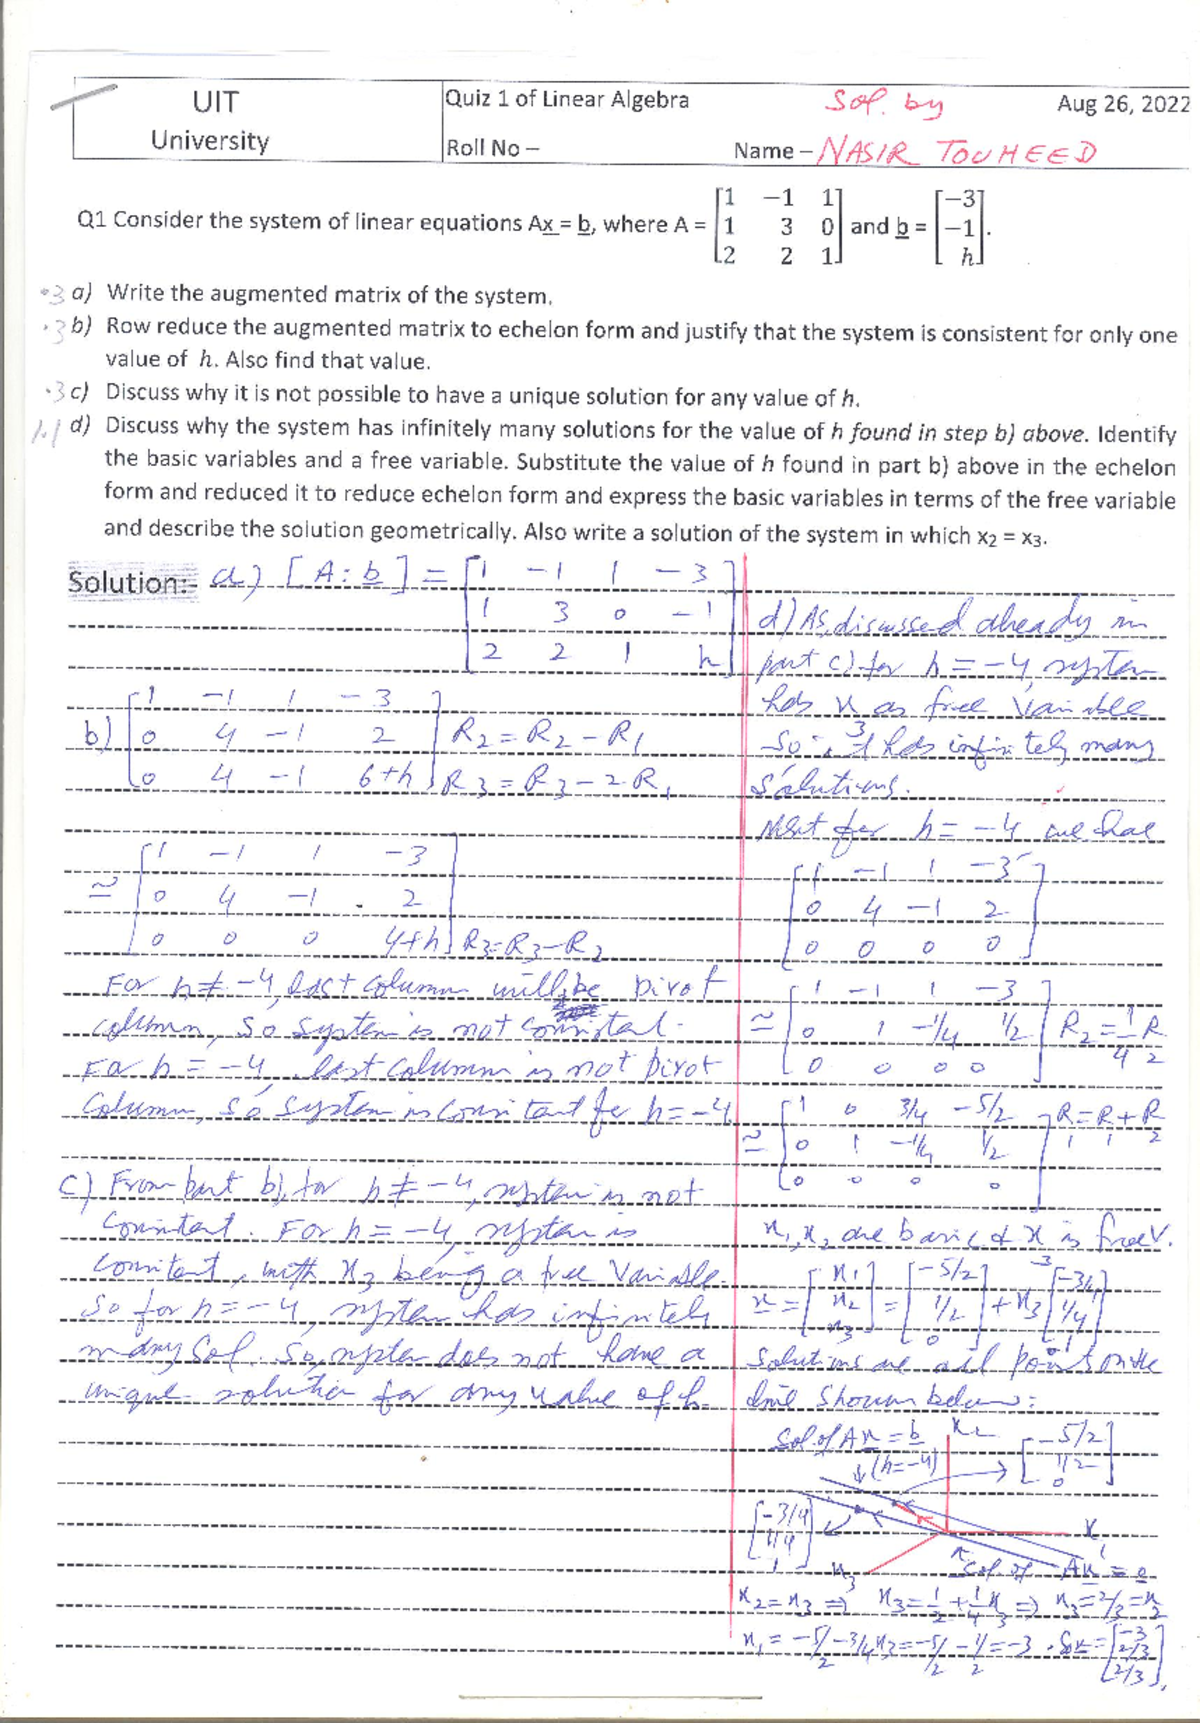 UIT
University
Quiz 1 of Linear Algebra
Sol. by
Aug 26, 2022
Roll No –
Name – NASIR TOUHEED
Q1 Consider the system of linear equations Ax = b, where A = [1 −1 1; 1 3 0; 2 2 1] and b = [−3; −1; h].
·3 a) Write the augmented matrix of the system.
·3 b) Row reduce the augmented matrix to echelon form and justify that the system is consistent for only one
value of h. Also find that value.
·3 c) Discuss why it is not possible to have a unique solution for any value of h.
1.1 d) Discuss why the system has infinitely many solutions for the value of h found in step b) above. Identify
the basic variables and a free variable. Substitute the value of h found in part b) above in the echelon
form and reduced it to reduce echelon form and express the basic variables in terms of the free variable
and describe the solution geometrically. Also write a solution of the system in which x2 = x3.
Solution:- a) [A : b] = [1 -1 1 -3
1 3 0 -1
2 2 1 h]
b) [1 -1 1 -3
0 4 -1 2] R2 = R2 - R1
0 4 -1 6+h] R3 = R3 - 2R1
≃ [1 -1 1 -3
0 4 -1 2
0 0 0 4+h] R3=R3-R2
For h ≠ -4, last column will be pivot
column, so system is not consistant.
For h = -4, last column is not pivot
column, so system is consistant for h = -4
c) From part b), for h ≠ -4, system is not
consistant. For h = -4, system is
consistant, with x3 being a free variable.
So for h = -4, system has infinitely
many sol. So, system does not have a
unique solution for any value of h.
d) As, discussed already in
part c) for h = -4, system
has x3 as free variable
So ∴ it has infinitely many
solutions.
Next for h = -4 we have
[1 -1 1 -3
0 4 -1 2
0 0 0 0]
≃ [1 -1 1 -3
0 1 -1/4 1/2] R2 = 1/4 R2
0 0 0 0]
≃ [1 0 3/4 -5/2] R1 = R1 + R2
0 1 -1/4 1/2
0 0 0 0]
x1, x2 are basic & x3 is free V.
x = [x1; x2; x3] = [-5/2; 1/2; 0] + x3 [-3/4; 1/4; 1]
Solutions are all points on the
line shown below:
Sol. of Ax = b
(h=-4)
x2
[-5/2; 1/2; 0]
[-3/4; 1/4; 1]
x1
x3
Sol. of Ax = 0
x2 = x3 ⇒ x3 = 1/2 + 1/4 x3 ⇒ x3 = 2/3 = x2
x1 = -5/2 - 3/4 x3 = -5/2 - 1/2 = -3. So x = [-3; 2/3; 2/3].